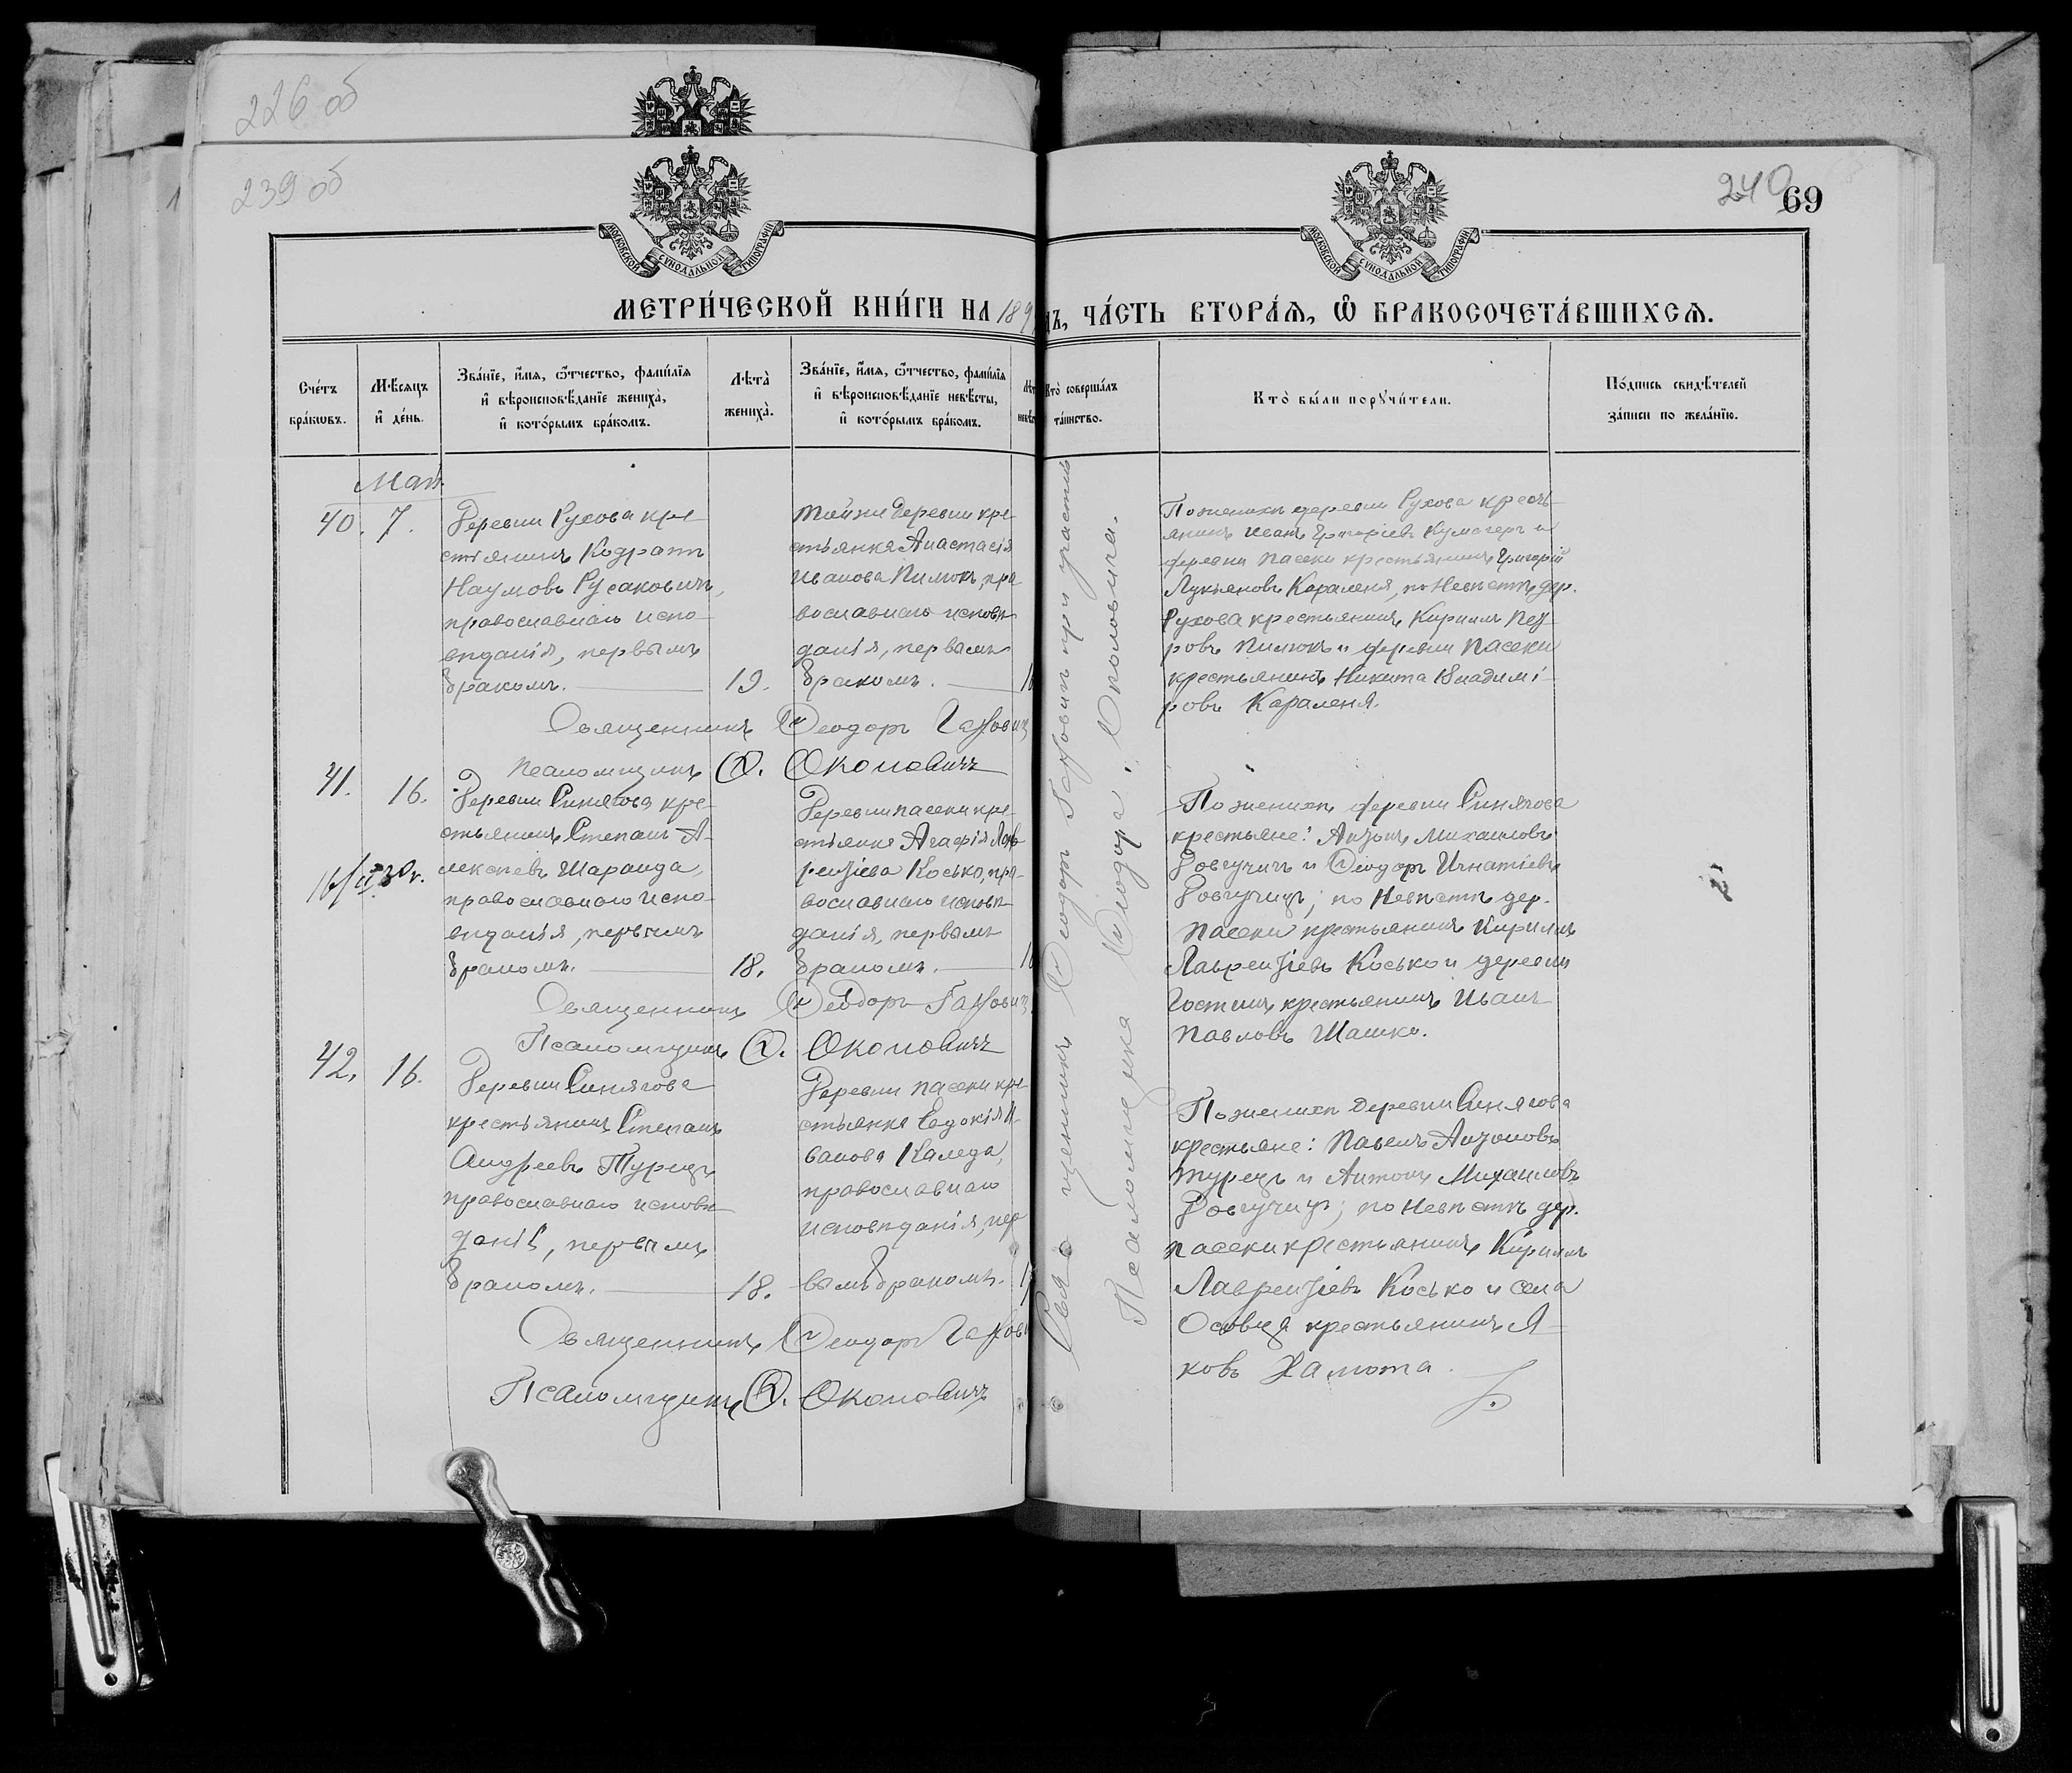 226 об
239 об
240
69
МОСКОВСКОЙ СУНОДАЛЬНОЙ ТИПОГРАФІИ
МОСКОВСКОЙ СУНОДАЛЬНОЙ ТИПОГРАФІИ
МЕТРИ́ЧЕСКОЙ КНИ́ГИ НА 189
ДЪ, ЧА́СТЬ ВТОРА́Я, Ѽ БРАКОСОЧЕТА́ВШИХСЯ.
Сче́тъ бра́кѡвъ.
Мѣ́сяцъ и҆ де́нь.
Зва́нїе, и҆́мя, ѻ҆́тчество, фами́лїя
и҆ вѣроисповѣ́данїе жениха̀,
и҆ кото́рымъ бра́комъ.
Лѣта̀ жениха̀.
Зва́нїе, и҆́мя, ѻ҆́тчество, фами́лїя
и҆ вѣроисповѣ́данїе невѣ́сты,
и҆ кото́рымъ бра́комъ.
Кто̀ соверша́лъ
та́инство.
Кто̀ бы́ли порꙋчи́тели.
По́дпись свидѣ́телей
за́писи по жела́нїю.
Май.
40. 7.
Деревни Рухова кре-
стьянинъ Кодратъ
Наумовъ Русаковичъ,
православнаго испо-
вѣданія, первымъ
бракомъ.
19.
Тойже деревни кре-
стьянка Анастасія
Иванова Пилюкъ, пра
вославнаго исповѣ-
данія, первымъ
бракомъ.
Священникъ Ѳеодоръ
Псаломщикъ Ѳ. Околовичъ
По женихѣ деревни Рухова кресть-
янинъ Иванъ Григоріевъ и
деревни Пасеки крестьянинъ Григорій
Лукьяновъ Караленя, по Невѣстѣ дер.
Рухова крестьянинъ Кириллъ Пет-
ровъ Пилюкъ и деревни Пасеки
крестьянинъ Никита Владимі-
ровъ Караленя.
41. 16.
Деревни Синягова кре-
стьянинъ Степанъ А-
лексѣевъ Шаранда,
православнаго испо-
вѣданія, первымъ
бракомъ.
18.
Деревни Пасеки кре-
стьянка Агафія Лав-
рентіева Косько, пра-
вославнаго исповѣ-
данія, первымъ
бракомъ.
Священникъ Ѳеодоръ
Псаломщикъ Ѳ. Околовичъ
По женихѣ деревни Синягова
крестьяне: Антонъ Михаиловъ
Ровгучичъ и Ѳеодоръ Игнатіевъ
Ровгучичъ; по Невѣстѣ дер.
Пасеки крестьянинъ Кириллъ
Лаврентіевъ Косько и деревни
крестьянинъ Иванъ
Павловъ Шашко.
42. 16.
Деревни Синягова
крестьянинъ Степанъ
Андреевъ Турецъ,
православнаго исповѣ-
данія, первымъ
бракомъ.
18.
Деревни Пасеки кре-
стьянка Евдокія И-
ванова Каледа,
православнаго
исповѣданія, пер
вымъ бракомъ.
Священникъ Ѳеодоръ
Псаломщикъ Ѳ. Околовичъ
По женихѣ деревни Синягова
крестьяне: Павелъ Антоновъ
Турецъ и Антонъ Михаиловъ
Ровгучичъ; по Невѣстѣ дер.
Пасеки крестьянинъ Кириллъ
Лаврентіевъ Косько и села
Осовца крестьянинъ Я-
ковъ Хамота.
Священникъ Ѳеодоръ при участіи
Псаломщика Ѳеодора Околовича.